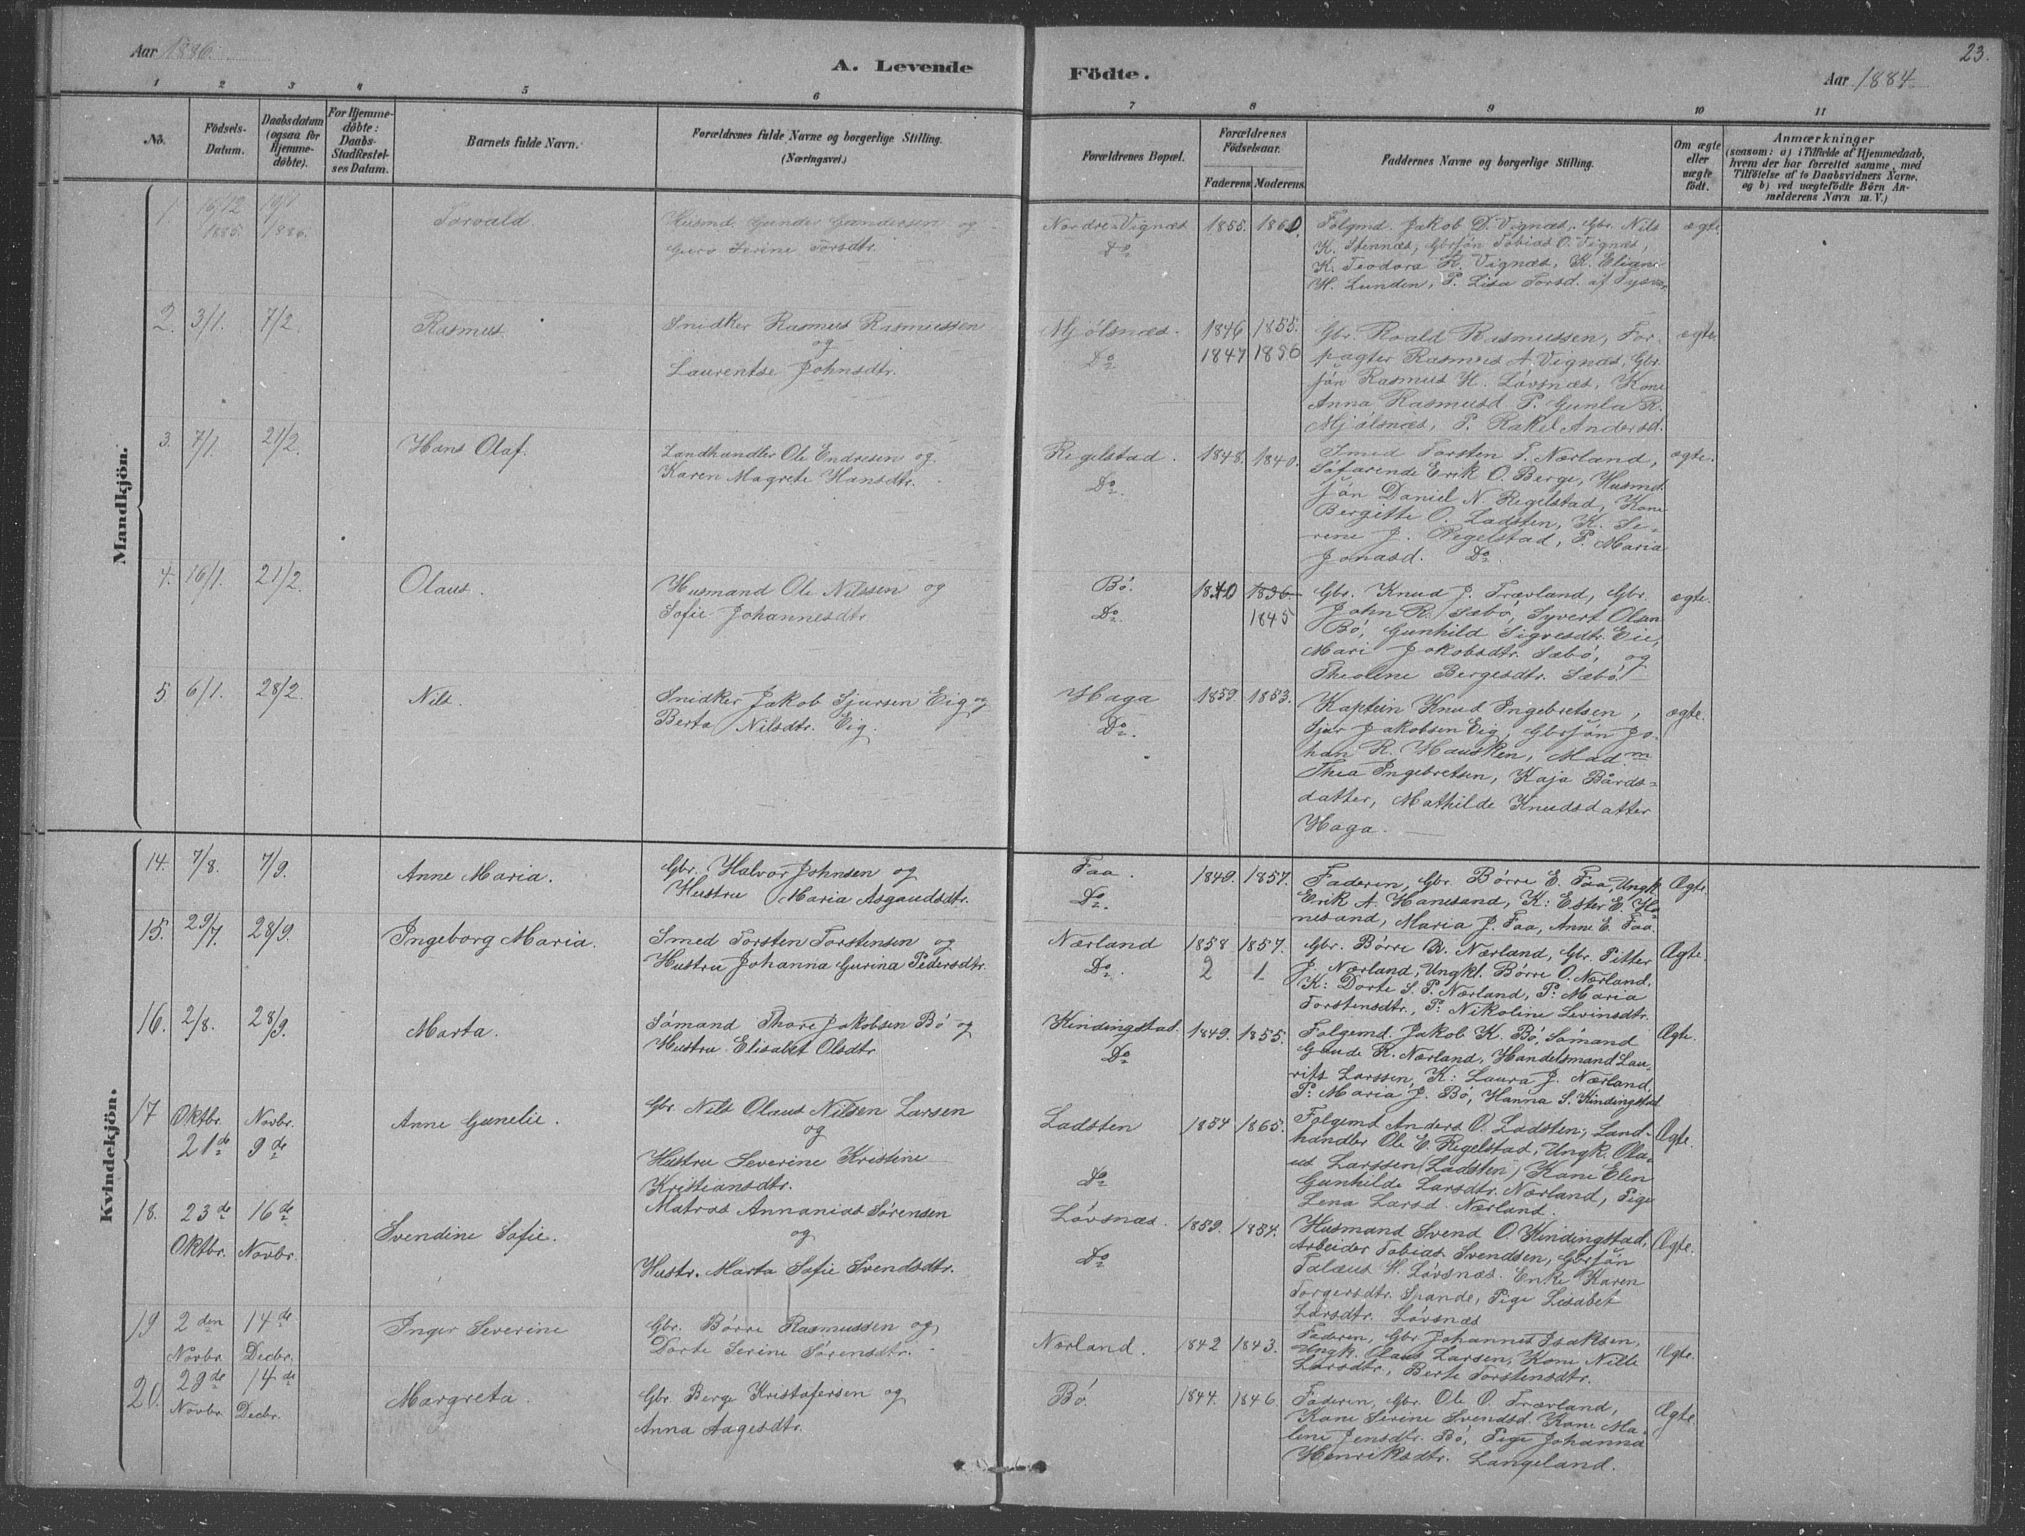 Aar 1886.
A. Levende Födte.
Aar 1884
23.
1 2 3 4 5 6 7 8 9 10 11
No.
Födsels-Datum.
Daabsdatum (ogsaa for Hjemme-döbte).
For Hjemme-döbte: Daabs-Stadfæstel-ses Datum.
Barnets fulde Navn.
Forældrenes fulde Navne og borgerlige Stilling. (Næringsvei.)
Forældrenes Bopæl.
Forældrenes Födselsaar.
Faderens Moderens
Faddernes Navne og borgerlige Stilling.
Om ægte eller uægte født.
Anmærkninger
(saasom: a) i Tilfælde af Hjemmedaab,
hvem der har forrettet samme, med
Tilföielse af to Daabsvidners Navne,
og b) ved uægtefödte Börn An-
melderens Navn m.V.)
Mandkjön.
1. 16/12 1885. 19/1 1886. Torvald
Husmd. Gunder Gundersen og
Guro Serine Torsdtr.
Nordre Vignæs Do 1855. 1860.
Folgmd. Jakob D. Vignæs, Gbr. Nils
K. Stennæs, Gbrsön Tobias O. Vignæs,
K. Teodora R. Vignæs, K. Eliane
H. Lunden, P. Lisa Torsd. af Tysvær.
ægte
2. 3/1. 7/2. Rasmus
Snidker Rasmus Rasmussen
og
Laurentse Johnsdtr.
Mjölsnæs. Do 1846 1855.
1847 1856
Gbr. Roald Rasmussen, For-
pagter Rasmus A. Vignæs, Gbr.
sön Rasmus H. Lövsnæs, Kone
Anna Rasmusd. P. Gunla R.
Mjölsnæs, P. Rakel Andersd.
ægte.
3. 7/1. 21/2. Hans Olaf.
Landhandler Ole Endresen og
Karen Magrete Hansdtr.
Regelstad. Do. 1848. 1840.
Smed Torsten T. Nærland,
Söfarende Erik O. Berge, Husmd.
sön Daniel N. Regelstad, Kone
Bergitte O. Ladsten, K. Se-
rene J. Regelstad, P. Maria
Jonasd. Do
ægte.
4. 16/1. 21/2. Olaus.
Husmand Ole Nilssen og
Sofie Johannesdtr
Bö. Do. 1840 1836
1845
Gbr. Knud J. Trævland, Gbr.
John R. Sæbö, Syvert Olsen
Bö, Gunhild Sigvesdtr. Eie,
Mari Jakobsdtr. Sæbö, og
Theoline Bergesdtr. Sæbö
ægte.
5 6/1. 28/2. Nils.
Snidker Jakob Sjursen Eig og
Berta Nilsdtr. Eig.
Haga Do. 1859. 1853.
Kaptein Knud Ingebretsen,
Sjur Jakobsen Eig, Gbrsön Jo-
han R. Hausken, Madm
Thea Ingebretsen, Kaja Bårds-
datter, Mathilde Knudsdatter
Haga.
ægte.
Kvindekjön.
14. 7/8. 7/9. Anne Maria.
Gbr. Halvor Johnsen og
Hustru Maria Asgaudsdtr.
Faa. Do. 1849. 1857.
Faderen, Gbr. Börre E. Faa, Ungk.
Erik A. Hanesand, K: Ester E. Ha-
nesand, Maria J. Faa, Anne E. Faa.
Ægte.
15. 29/7. 28/9. Ingeborg Maria.
Smed Torsten Torstensen og
Hustru Johanna Gurina Pedersdtr.
Nærland Do. 1858 1857.
2 1
Gbr. Börre R. Nærland, Gbr. Pitter
J. Nærland, Ungkl. Börre O. Nærland.
K: Dorte S. P. Nærland, P: Maria
Torstensdtr., P. Nikoline Levinsdtr.
Ægte.
16. 2/8. 28/9. Marta.
Sömand Thore Jakobsen Bö og
Hustru Elisabet Olsdtr
Kindingstad. Do 1849. 1855.
Folgemd. Jakob K. Bö, Sömand
Gaude R. Nærland, Handelsmand Lau-
rits Larssen, K: Laura J. Nærland,
P: Maria J. Bö, Hanna S. Kindingstad
Ægte.
17 Oktbr. 21de Novbr. 9de Anne Gunelie.
Gbr. Nils Olaus Nilsen Larsen
og
Hustru Severine Kristine
Kristiansdtr.
Ladsten Do 1854 1865.
Folgemd Anders O. Ladsten, Land-
handler Ole E. Regelstad, Ungk. Ola-
us Larssen (Ladsten), Kone Elen
Gunhilde Larsdtr. Nærland, Pige
Lena Larsd. Nærland.
Ægte.
18. 23de Oktbr. 16de Novbr. Svendine Sofie.
Matros Annanias Sörensen
og
Hustr. Marta Sofie Svendsdtr.
Lövsnæs. Do 1859. 1854.
Husmand Svend O. Kindingstad,
Arbeider Tobias Svendsen, Gbrsön
Talaus H. Lövsnæs. Enke Karen
Torgersdtr. Spande, Pige Lisabet
Larsdtr. Lövsnæs
Ægte.
19 2den Novbr. 14de Decbr. Inger Severine
Gbr. Börre Rasmussen og
Dorte Serine Sörensdtr.
Nærland. 1842 1843.
Faderen, Gbr Johannes Isaksen,
Ungk. Olaus Larsen, Kone Nille
Larsdtr, Berte Torstensdtr.
Ægte.
20. 28de Novbr. 14de Decbr. Margreta.
Gbr. Berge Kristofersen og
Anna Aagesdtr.
Bö. 1844. 1846.
Faderen, Gbr. Ole O. Trævland,
Kone Serine Svendsd. Kone Ma-
lene Jensdtr. Bö, Pige Johanna
Henriksdtr. Langeland.
Ægte.